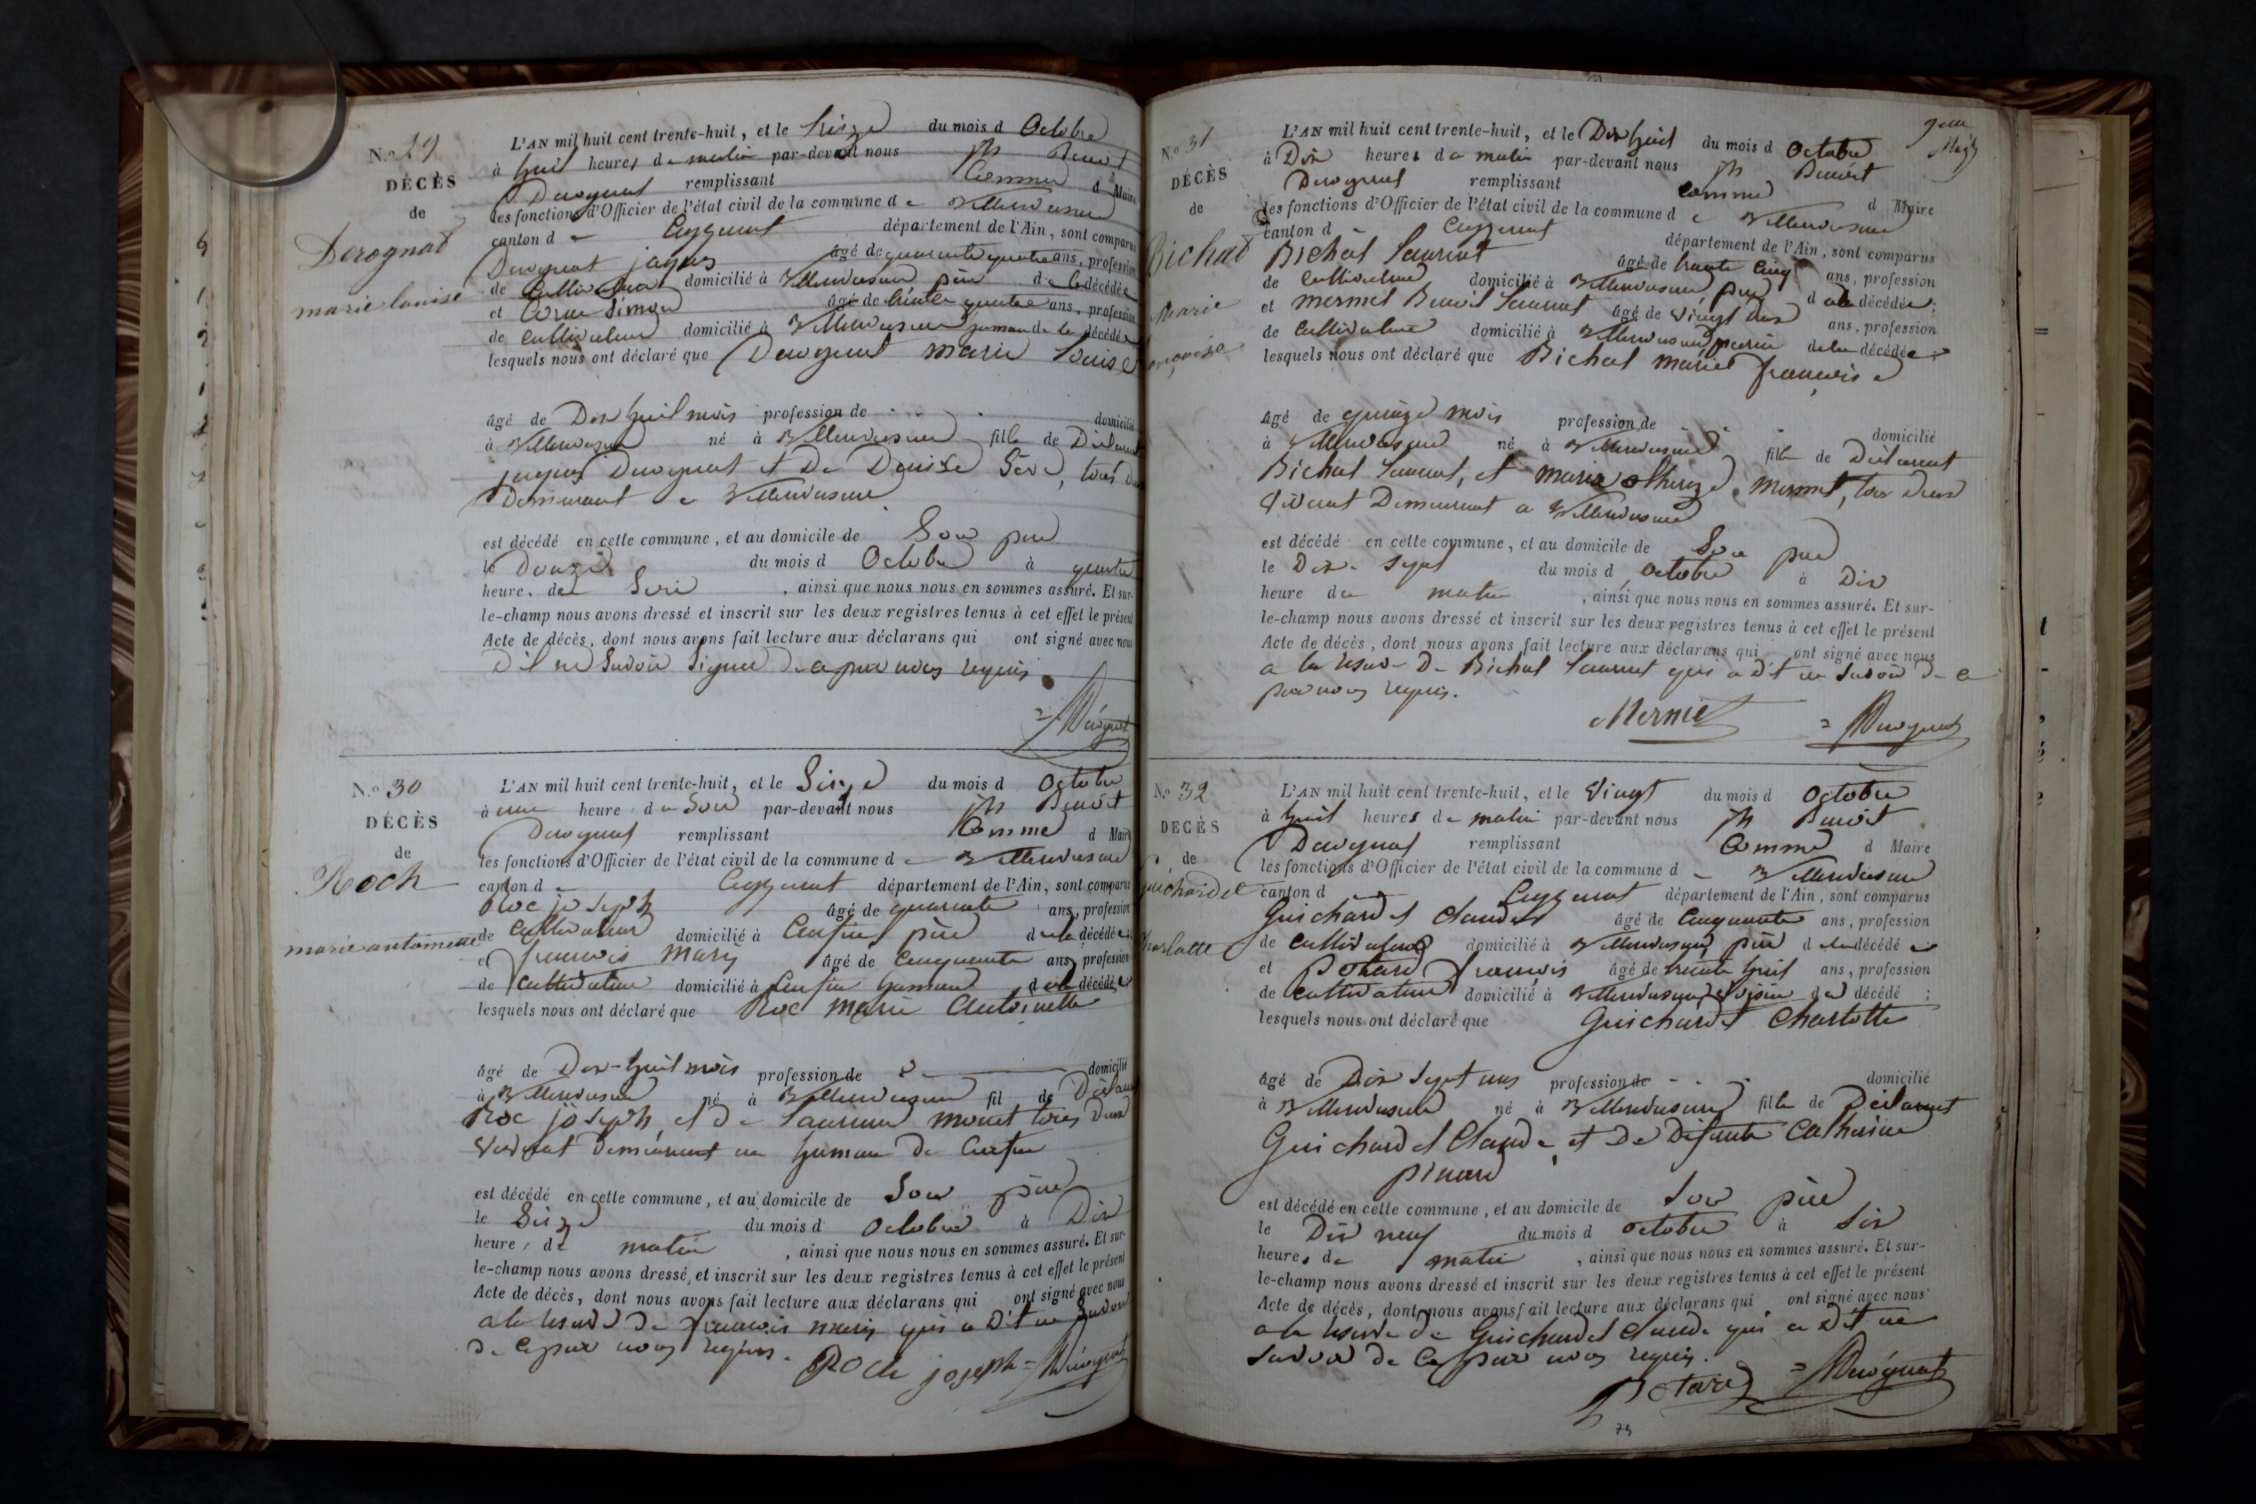 N.o 29
DÉCÈS
de
Derognat
marie louise
L'AN mil huit cent trente-huit, et le treize du mois d Octobre
à huit heures de matin par-devant nous jh Benoit
Derognat remplissant Comme d Maire
les fonctions d'Officier de l'état civil de la commune de Villereversure
canton de Ceyzeriat département de l'Ain, sont comparus
Derognat jaques âgé de quarante quatre ans, profession
de Cultivateur domicilié à Villereversure père de la décédée
et Simon âgé de trente quatre ans, profession
de cultivateur domicilié à Villereversure de la décédée
lesquels nous ont déclaré que Derognat marie Louise
âgé de Dix huit mois profession de domicilié
à Villereversure né à Villereversure fille de Déclarant
jaques Derognat et De Denise Sève, tous deux
Demeurant a Villereversure
est décédé en cette commune, et au domicile de Son père
le Douze du mois d Octobre à quatre
heure, de Soir, ainsi que nous nous en sommes assuré. Et sur-
le-champ nous avons dressé et inscrit sur les deux registres tenus à cet effet le présent
Acte de décès, dont nous avons fait lecture aux déclarans qui ont signé avec nous
Signer De ce par nous requis
Derognat
N.o 30
DÉCÈS
de
Roch
marie antoinette
L'AN mil huit cent trente-huit, et le Seize du mois d Octobre
à une heure de Soir par-devant nous jh Benoit
Derognat remplissant Comme d Maire
les fonctions d'Officier de l'état civil de la commune de Villereversure
canton d Ceyzeriat département de l'Ain, sont comparus
Roc joseph âgé de quarante ans, profession
de Cultivateur domicilié à père de la décédée
et francois Mary âgé de Cinquante ans, profession
de Cultivateur domicilié à décédée
lesquels nous ont déclaré que Roc Marie Antoinette
âgé de Dix-huit mois profession de domicilié
à Villereversure né à Villereversure fil de Déclarant
Roc joseph et De tous Deux
Vivant Demeurant au hameau De
est décédé en cette commune, et au domicile de Son père
le Seize du mois d Octobre à Dix
heure, de matin, ainsi que nous nous en sommes assuré. Et sur-
le-champ nous avons dressé et inscrit sur les deux registres tenus à cet effet le présent
Acte de décès, dont nous avons fait lecture aux déclarans qui ont signé avec nous
a la De francois mary qui a Dit ne Savoir
De ce par nous requis. ROCh joseph Derognat
N.o 31
DÉCÈS
de
Bichat
Marie
francoise
L'AN mil huit cent trente-huit, et le Dix huit du mois d Octobre
à Dix heures de matin par-devant nous jh Benoit
Derognat remplissant Comme d Maire
les fonctions d'Officier de l'état civil de la commune de Villereversure
canton d Ceyzeriat département de l'Ain, sont comparus
Bichat Laurent âgé de trente Cinq ans, profession
de Cultivateur domicilié à Villereversure père de la décédée;
et mermet Benoit Laurent âgé de vingt ans, profession
de Cultivateur domicilié à Villereversure de la décédée;
lesquels nous ont déclaré que Bichat marie francoise
âgé de quinze mois profession de domicilié
à Villereversure né à Villereversure fille de Déclarant
Bichat Laurent, et marie Mermet, tous deux
Vivant Demeurant a Villereversure
est décédé en cette commune, et au domicile de Son père
le Dix-sept du mois d octobre à Dix
heure de matin, ainsi que nous nous en sommes assuré. Et sur-
le-champ nous avons dressé et inscrit sur les deux registres tenus à cet effet le présent
Acte de décès, dont nous avons fait lecture aux déclarans qui ont signé avec nous
a la De Bichat Laurent qui a dit ne Savoir De ce
par nous requis.
Mermet Derognat
N.o 32
DÉCÈS
de
guichardet
Charlotte
L'AN mil huit cent trente-huit, et le Vingt du mois d Octobre
à huit heures de matin par-devant nous jh Benoit
Derognat remplissant Comme d Maire
les fonctions d'Officier de l'état civil de la commune de Villereversure
canton d Ceyzeriat département de l'Ain, sont comparus
Guichardet Claude âgé de Cinquante ans, profession
de Cultivateur domicilié à Villereversure père de la décédée
et Potard françois âgé de trente huit ans, profession
de cultivateur domicilié à Villereversure Voisin de décédé;
lesquels nous ont déclaré que Guichardet Charlotte
âgé de Dix Sept ans profession de domicilié
à Villereversure né à Villereversure fille de Déclarant
Guichardet Claude, et De Défunte Catherine
pinard
est décédé en cette commune, et au domicile de Son père
le Dix neuf du mois d octobre à Six
heures de matin, ainsi que nous nous en sommes assuré. Et sur-
le-champ nous avons dressé et inscrit sur les deux registres tenus à cet effet le présent
Acte de décès, dont nous avons fait lecture aux déclarans qui ont signé avec nous
a la De Guichardet Claude qui a Dit ne
Savoir De Ce par nous requis.
Potard Derognat